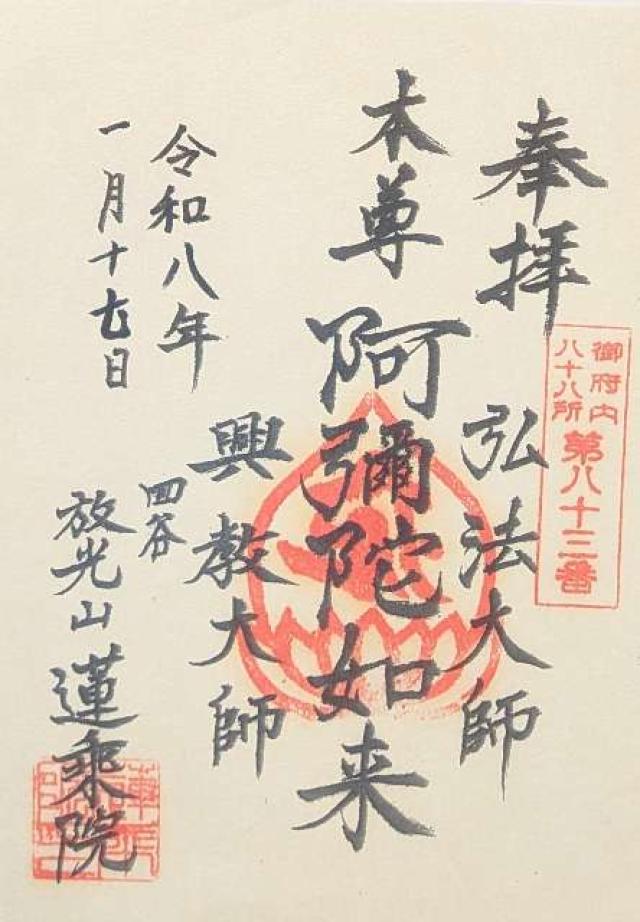 奉拝
御府内
八十八所
第八十三番
弘法大師
本尊 阿彌陀如来
興教大師
令和八年
一月十七日
四谷
放光山 蓮乘院